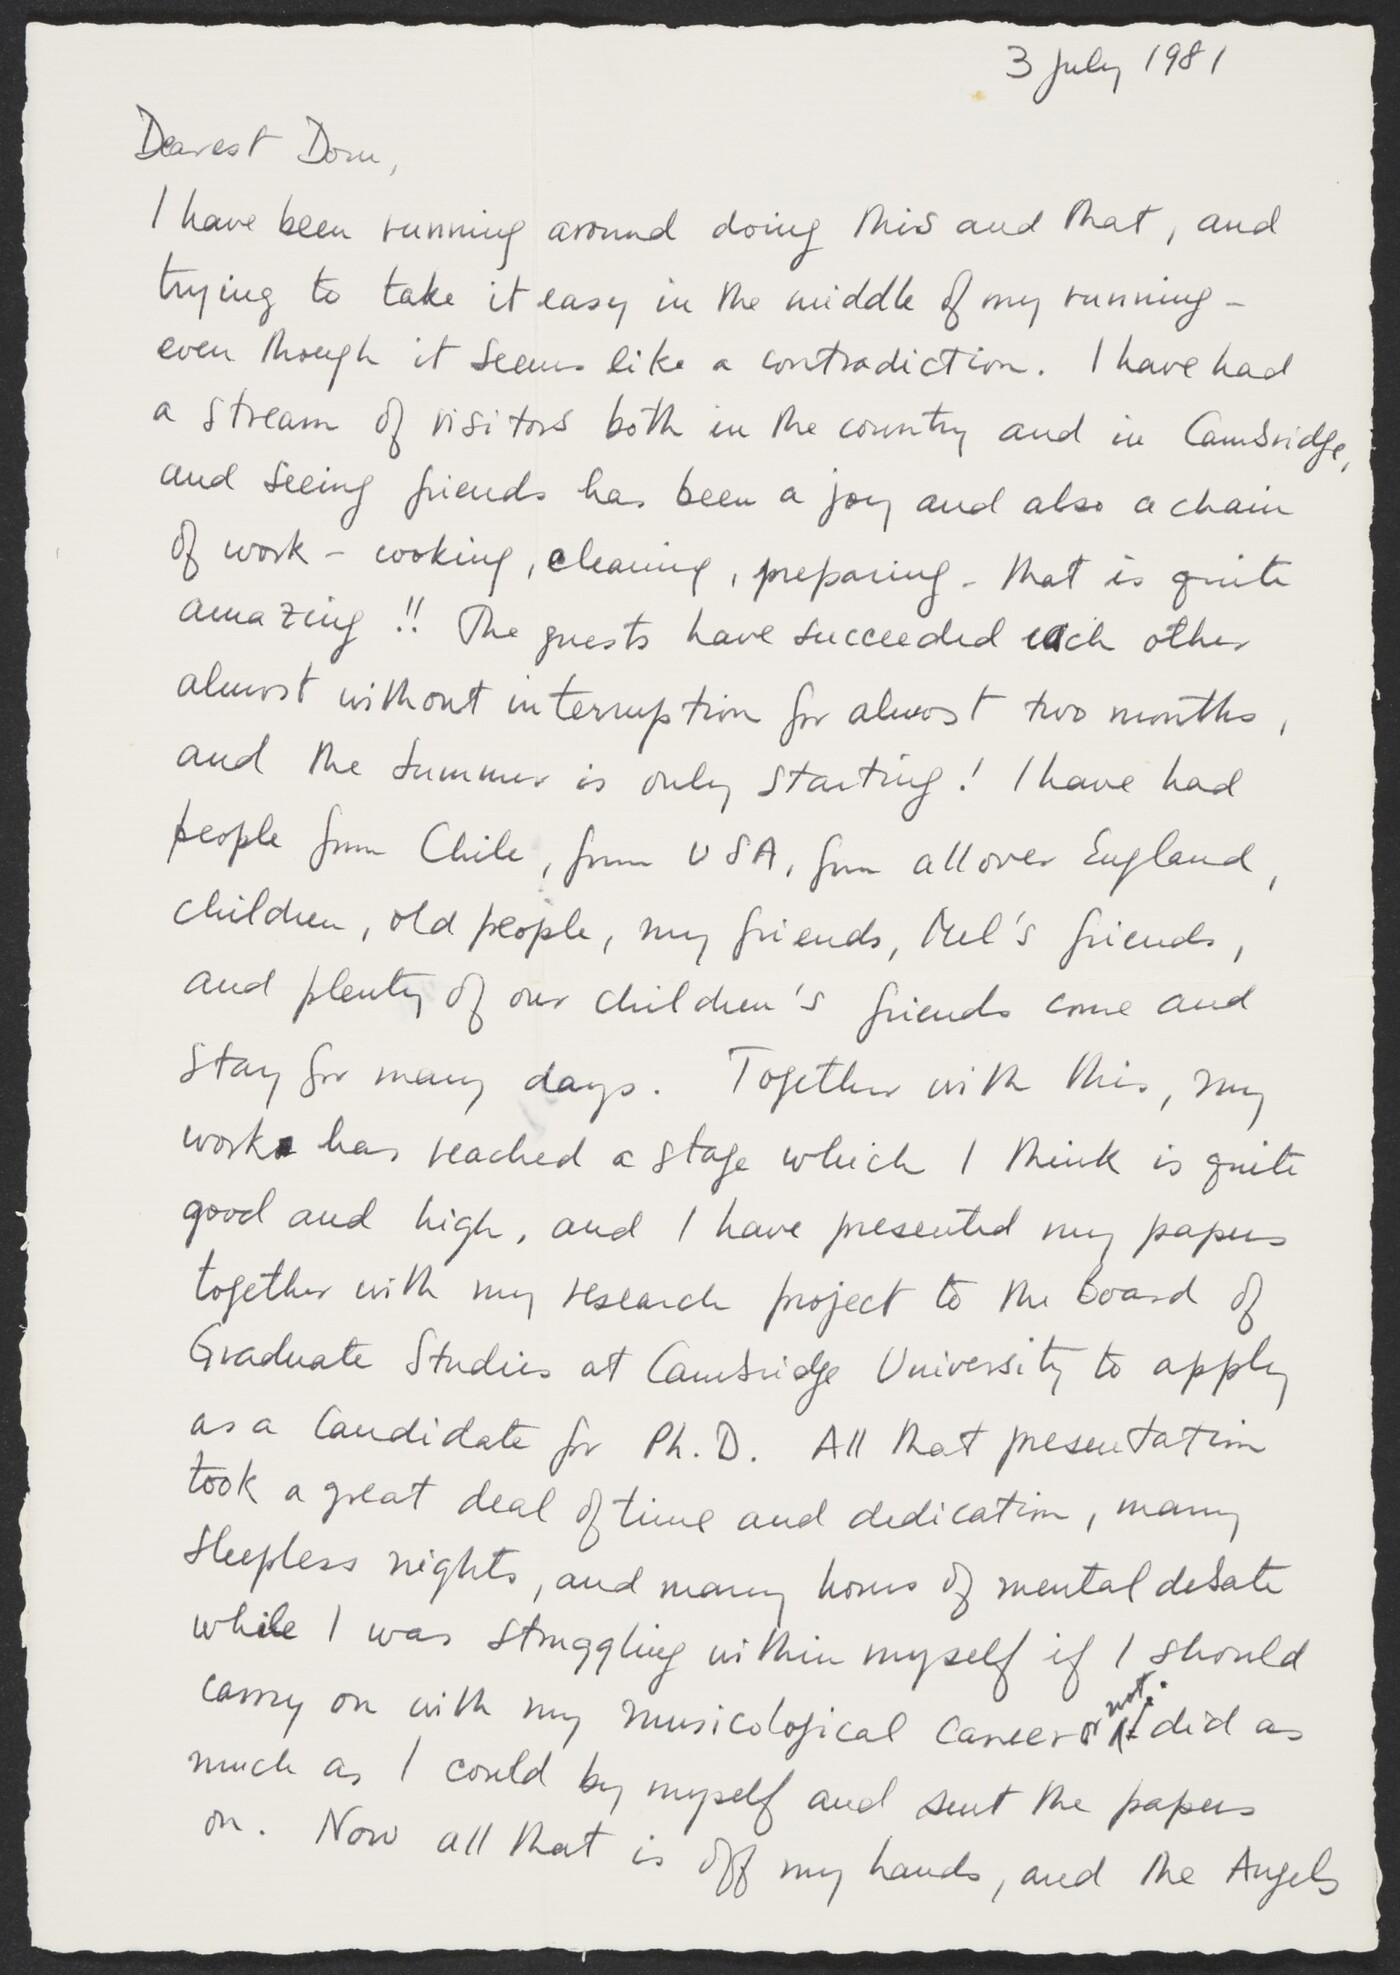 3 July 1981
Dearest Dom,
I have been running around doing this and that, and
trying to take it easy in the middle of my running -
even though it seems like a contradiction. I have had
a stream of visitors both in the country and in Cambridge,
and seeing friends has been a joy and also a chain
of work - cooking, cleaning, preparing - that is quite
amazing!! The guests have succeeded each other
almost without interruption for almost two months,
and the summer is only starting! I have had
people from Chile, from USA, from all over England,
children, old people, my friends, Mel's friends,
and plenty of our children's friends come and
stay for many days. Together with this, my
work has reached a stage which I think is quite
good and high, and I have presented my papers
together with my research project to the Board of
Graduate Studies at Cambridge University to apply
as a candidate for Ph.D. All that presentation
took a great deal of time and dedication, many
sleepless nights, and many hours of mental debate
while I was struggling within myself if I should
carry on with my musicological career or not. I did as
much as I could by myself and sent the papers
on. Now all that is off my hands, and the Angels